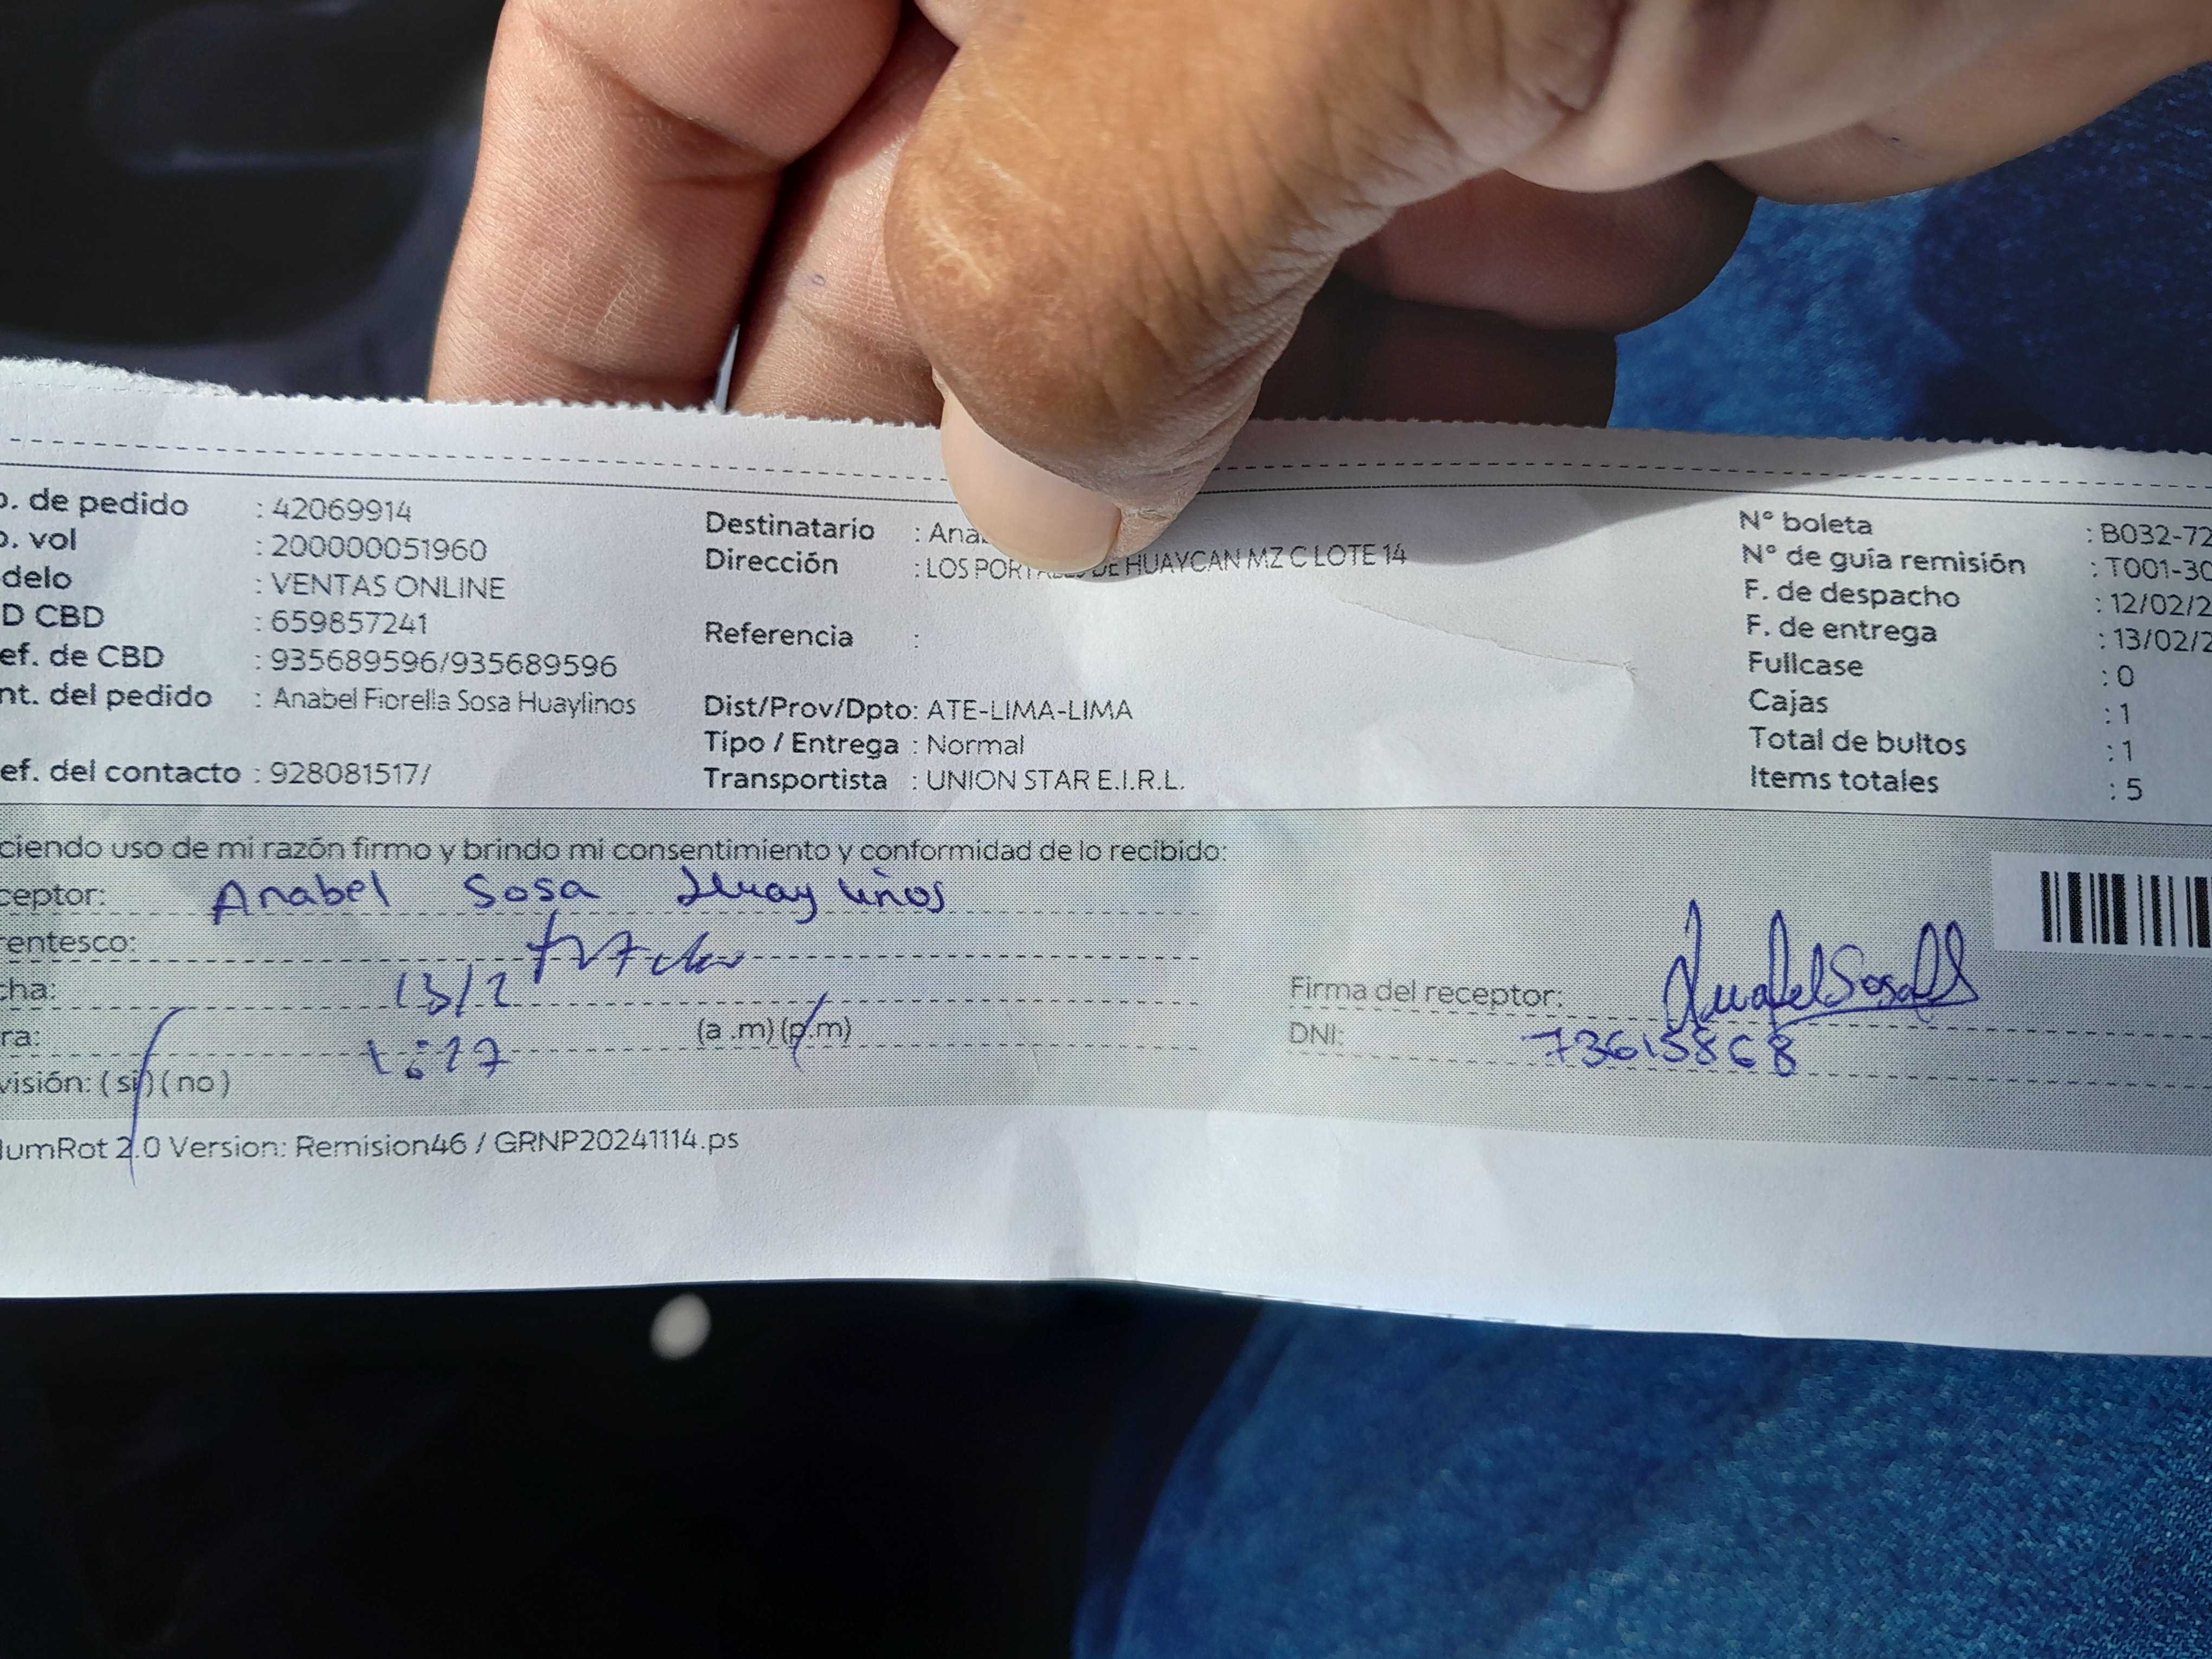 o. de pedido : 42069914
o. vol : 200000051960
delo : VENTAS ONLINE
D CBD : 659857241
ef. de CBD : 935689596/935689596
nt. del pedido : Anabel Fiorella Sosa Huaylinos
ef. del contacto : 928081517/
Destinatario : Ana
Dirección : LOS PORTALES DE HUAYCAN MZ C LOTE 14
Referencia :
Dist/Prov/Dpto: ATE-LIMA-LIMA
Tipo / Entrega : Normal
Transportista : UNION STAR E.I.R.L.
N° boleta : B032-72
N° de guía remisión : T001-30
F. de despacho : 12/02/2
F. de entrega : 13/02/2
Fullcase : 0
Cajas : 1
Total de bultos : 1
Items totales : 5
ciendo uso de mi razón firmo y brindo mi consentimiento y conformidad de lo recibido:
ceptor: Anabel Sosa Huayliños
rentesco:
cha: 13/2
ra: 1:27 (a .m) (p.m)
visión: (si) (no)
Firma del receptor:
DNI: 73615868
lumRot 2.0 Version: Remision46 / GRNP20241114.ps